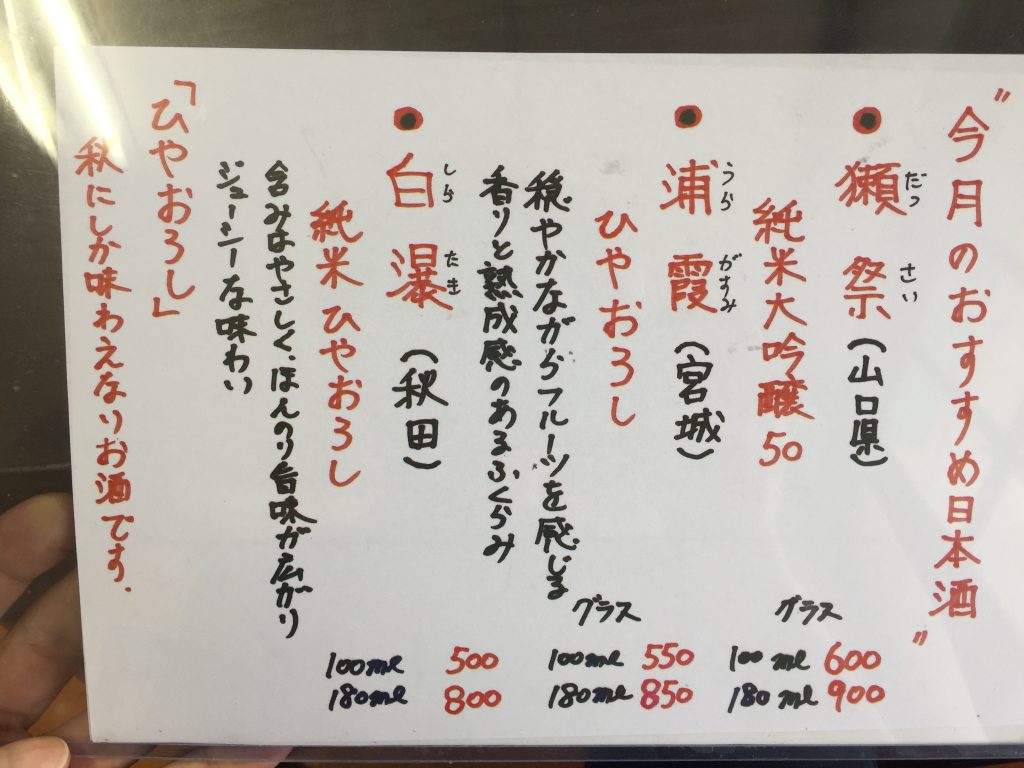 “今月のおすすめ日本酒”
獺祭(山口県)
だっ さい
純米大吟醸50
グラス
100ml 600
180ml 900
浦霞(宮城)
うら がすみ
ひやおろし
穏やかながらフルーツを感じる
香りと熟成感のあるふくらみ
グラス
100ml 550
180ml 850
白瀑(秋田)
しら たき
純米ひやおろし
含みはやさしく、ほんのり旨味が広がり
ジューシーな味わい
100ml 500
180ml 800
「ひやおろし」
秋にしか味わえないお酒です.